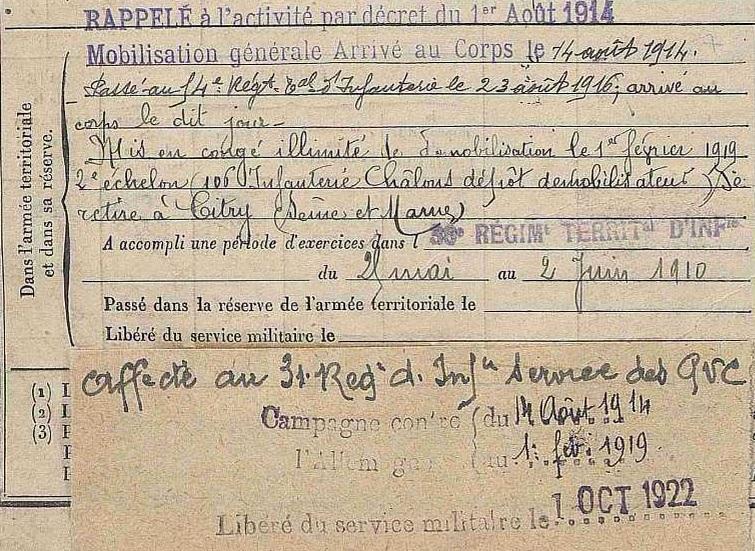 RAPPELÉ à l'activité par décret du 1er Août 1914
Mobilisation générale Arrivé au Corps le 14 août 1914.
Passé au 54e Régt. Tal d'Infanterie le 23 août 1916; arrivé au
corps le dit jour -
Mis en congé illimité de démobilisation le 1er février 1919
2e échelon (106e Infanterie Châlons dépôt démobilisateur) Se
retire à Citry (Seine et Marne)
Dans l'armée territoriale
et dans sa réserve.
A accompli une période d'exercices dans l RÉGIMt TERRITal D'INFie
du 2 mai au 2 Juin 1910
Passé dans la réserve de l'armée territoriale le
Libéré du service militaire le
(1) L
(2) L
(3) F
F
E
affecté au 31. Regt d. Infie Service des GVC
Campagne contre du 14 Août 1914
l'Allemagne au 1. fév. 1919
Libéré du service militaire le 1 OCT 1922